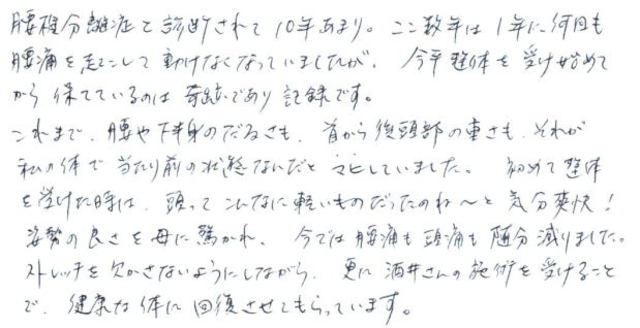 腰椎分離症と診断されて10年あまり。ここ数年は1年に何回も
腰痛を起こして動けなくなっていましたが、今年整体を受け始めて
から保てているのは奇跡であり記録です。
これまで、腰や下半身のだるさも、首から後頭部の重さも、それが
私の体で当たり前の状態なんだとマヒしていました。初めて整体
を受けた時は、頭ってこんなに軽いものだったのね〜と気分爽快!
姿勢の良さを母に驚かれ、今では腰痛も頭痛も随分減りました。
ストレッチを欠かさないようにしながら、更に酒井さんの施術を受けること
で、健康な体に回復させてもらっています。